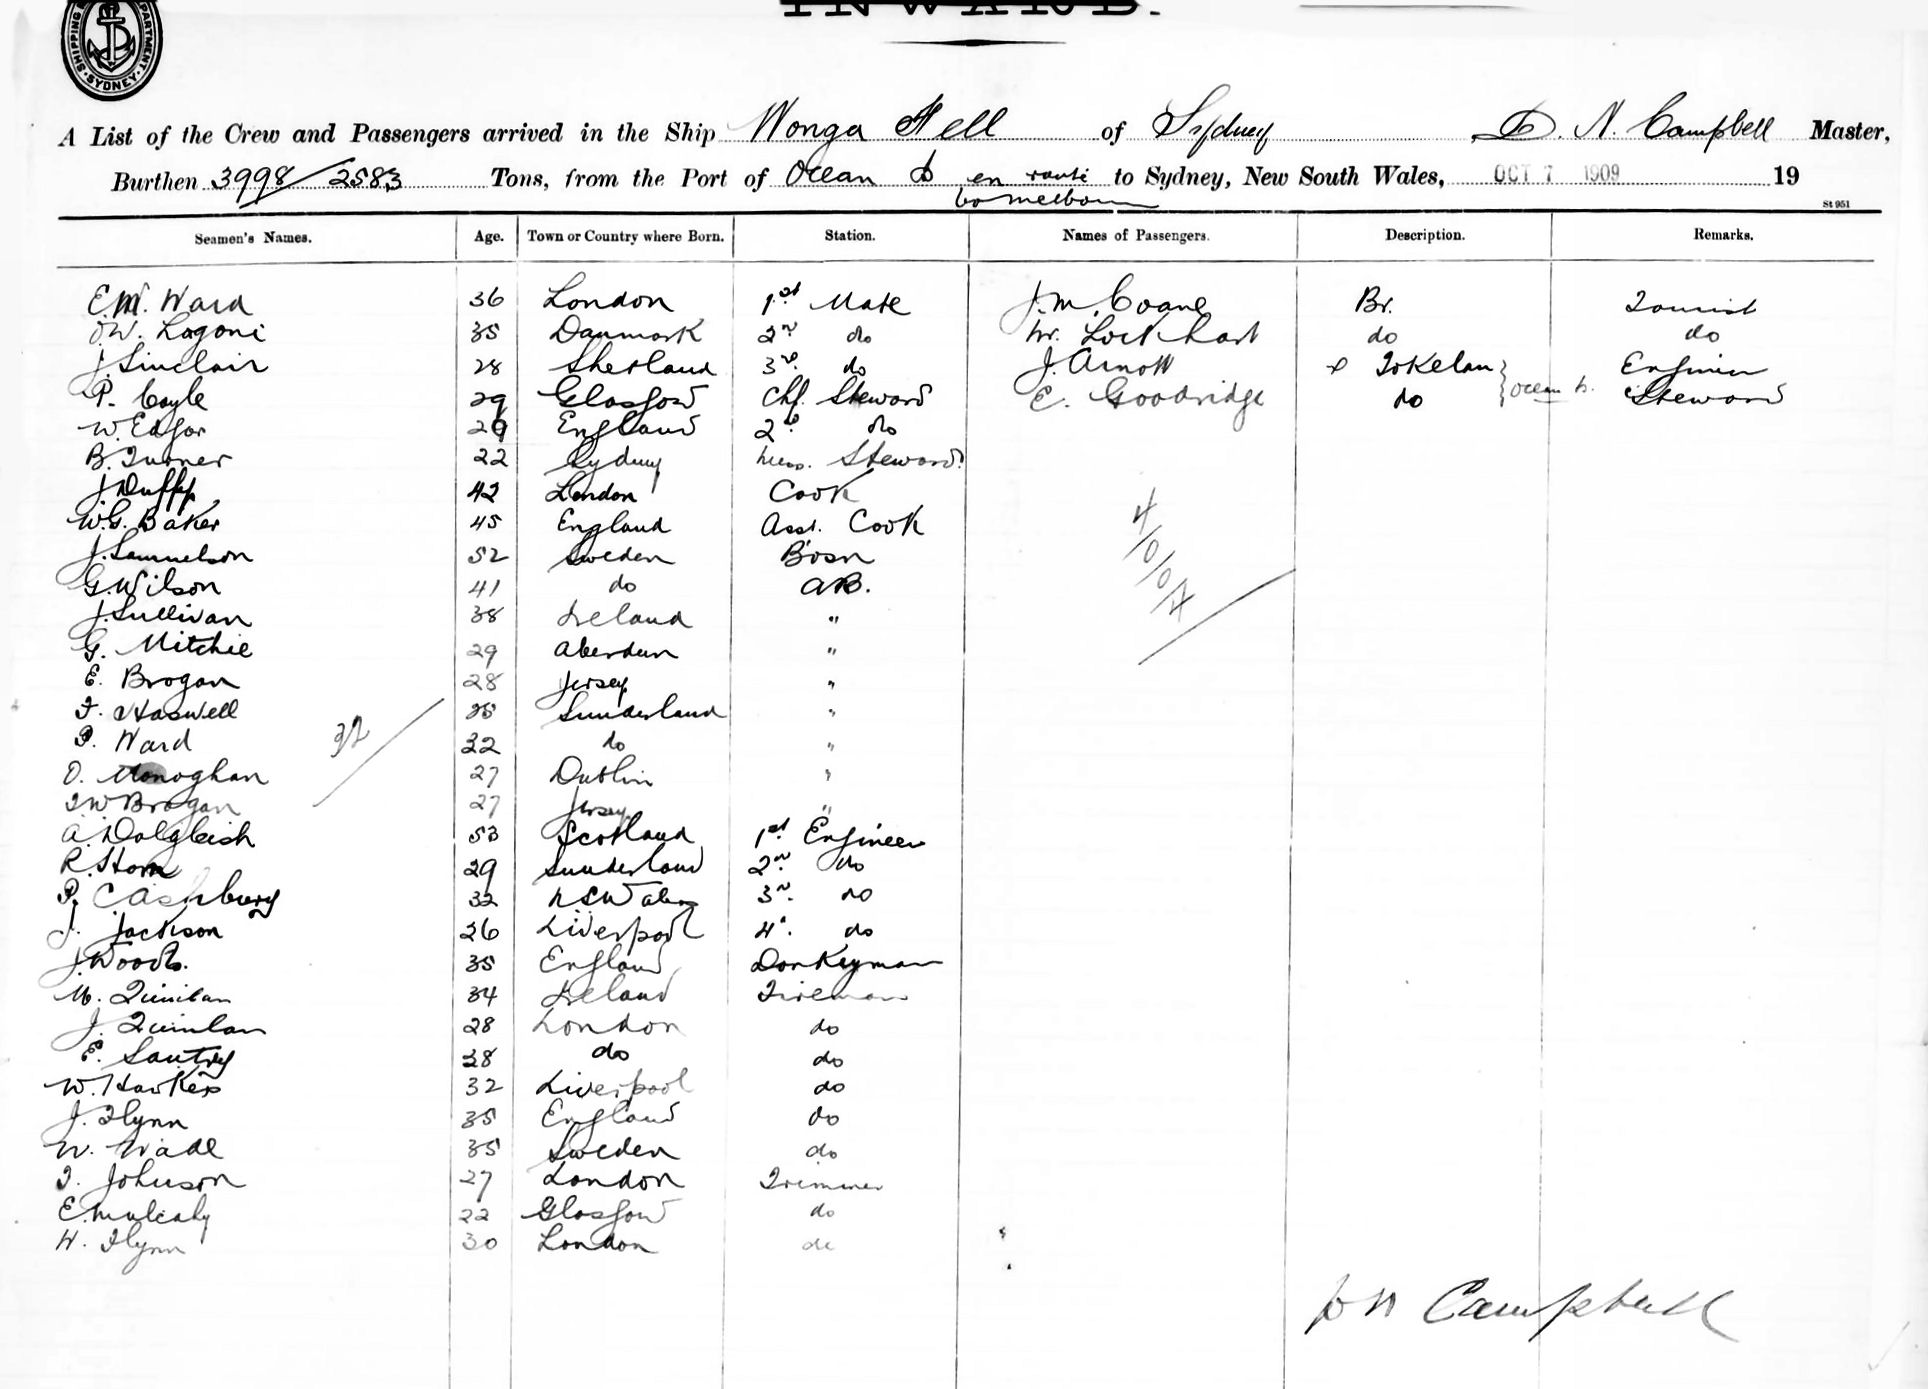 INWARD.
SHIPPING DEPARTMENT SYDNEY
A List of the Crew and Passengers arrived in the Ship Wonga Fell of Sydney D. N. Campbell Master,
Burthen 3998/2583 Tons, from the Port of Ocean Is en route to Sydney, New South Wales, OCT 7 1909 19
to Melbourne
St 951
Seamen's Names. Age. Town or Country where Born. Station. Names of Passengers. Description. Remarks.
E.W. Ward 36 London 1st Mate J.M. Coane Br. Tourist
O.W. Lagoni 35 Danmark 2nd do Mr. Lockhart do do
J. Sinclair 28 Shetland 3rd do J. Arnott Tokelau Engineer
P. Coyle 29 Glasgow Chf. Steward E. Goodridge do Ocean Is. Steward
W. Edgar 29 England 2nd do
B. Turner 22 Sydney Mess. Steward.
J. Duffy 42 London Cook
W.G. Baker 45 England Asst. Cook
J. Samuelson 52 Sweden Bosn
G. Wilson 41 do AB.
J. Sullivan 38 Ireland "
G. Mitchie 29 Aberdeen "
E. Brogan 28 Jersey "
F. Haswell 25 Sunderland "
P. Ward 32 do "
O. Monoghan 27 Dublin "
T W Brogan 27 Jersey "
A. Dalgleish 53 Scotland 1st Engineer
R. Horn 29 Sunderland 2nd do
P. C Ashbury 32 N S Wales 3rd do
J. Jackson 26 Liverpool 4th do
J. Woods. 35 England Donkeyman
M. Quinlan 34 Ireland Fireman
J. Quinlan 28 London do
E. Santry 38 do do
W. Hawkes 32 Liverpool do
J. Flynn 35 England do
W. Wade 35 Sweden do
T. Johnson 27 London Trimmer
E. Mulcahy 22 Glasgow do
W. Flynn 30 London do
32
4/0/0/4
D N Campbell